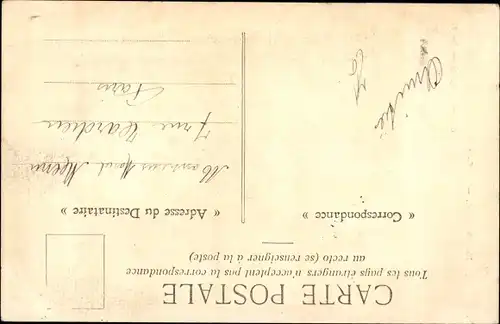 CARTE POSTALE
Tous les pays étrangers n'acceptent pas la correspondance
au recto (se renseigner à la poste)
« Correspondance »
« Adresse du Destinataire »
Amitié
Monsieur
7 rue
Paris